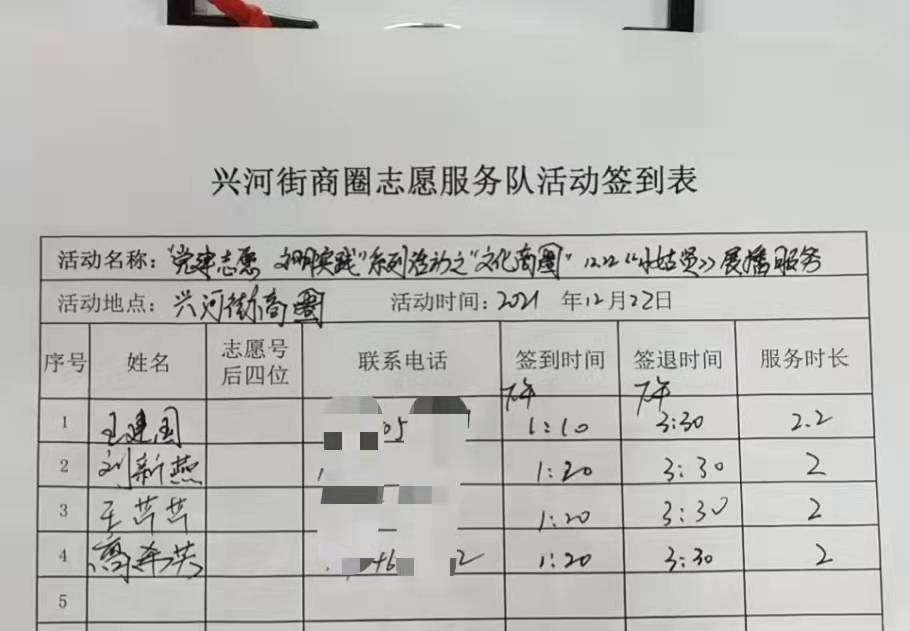 兴河街商圈志愿服务队活动签到表
活动名称：“党建志愿 文明实践”系列活动之“文化商圈” 12.22《村姑》展播服务
活动地点：兴河街商圈 活动时间：2021 年12月22日
序号 姓名 志愿号后四位 联系电话 签到时间 签退时间 服务时长
下午 下午
1 王建国 05 1:10 3:30 2.2
2 刘新燕 1:20 3:30 2
3 王芊芊 1:20 3:30 2
4 46 2 1:20 3:30 2
5